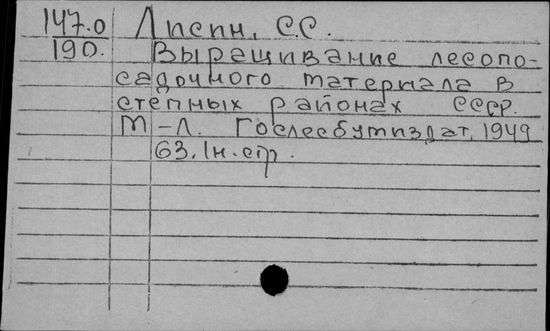 147.0 Лисин, С.С.
190. Выращивание лесопо-
садочного материала в
степных районах СССР.
М-Л. Гослесбумиздат, 1949
63. 1н. стр.